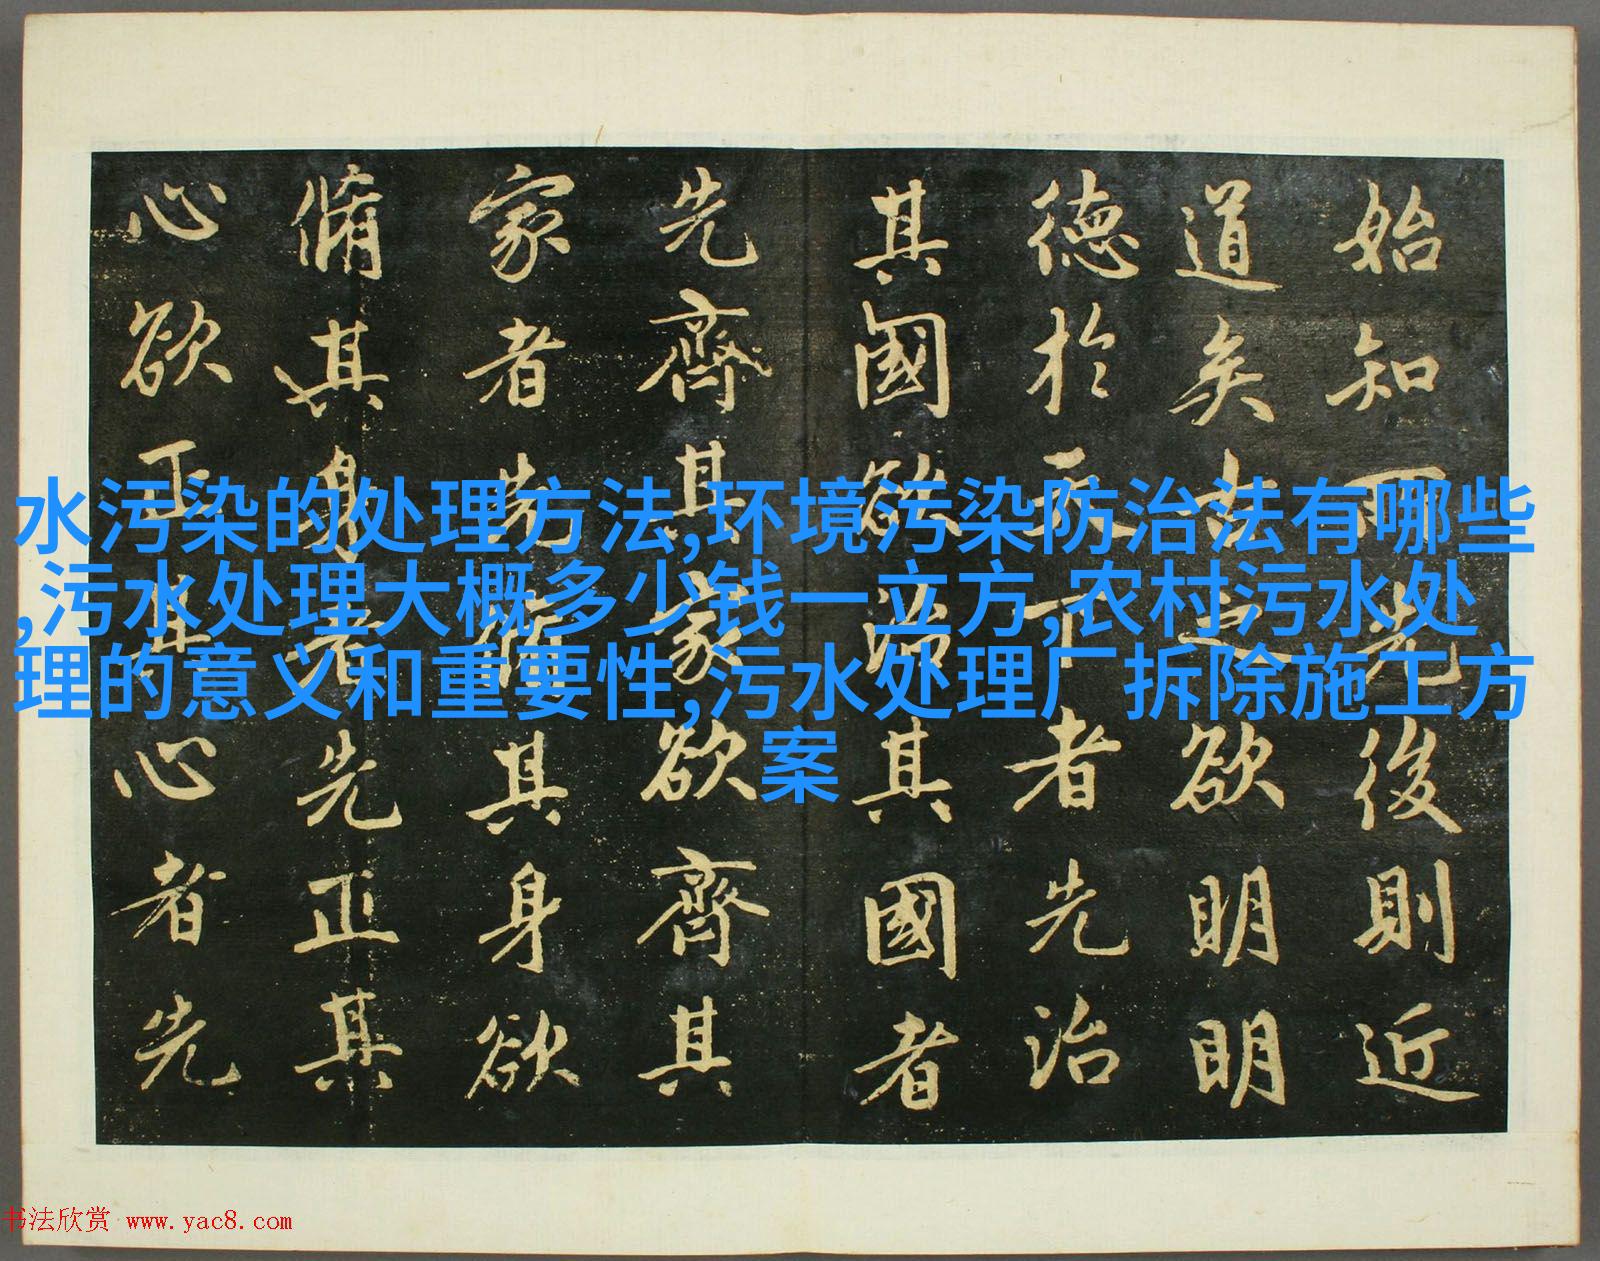 始知所先後則近
道矣古之欲明明
德於天下者先治
其國欲治其國者
先齊其家欲齊其
家者先脩其身欲
脩其身者先正其
心欲正其心者先
水污染的处理方法,环境污染防治法有哪些
,污水处理大概多少钱一立方,农村污水处
理的意义和重要性,污水处理厂拆除施工方
案
书法欣赏 www.yac8.com